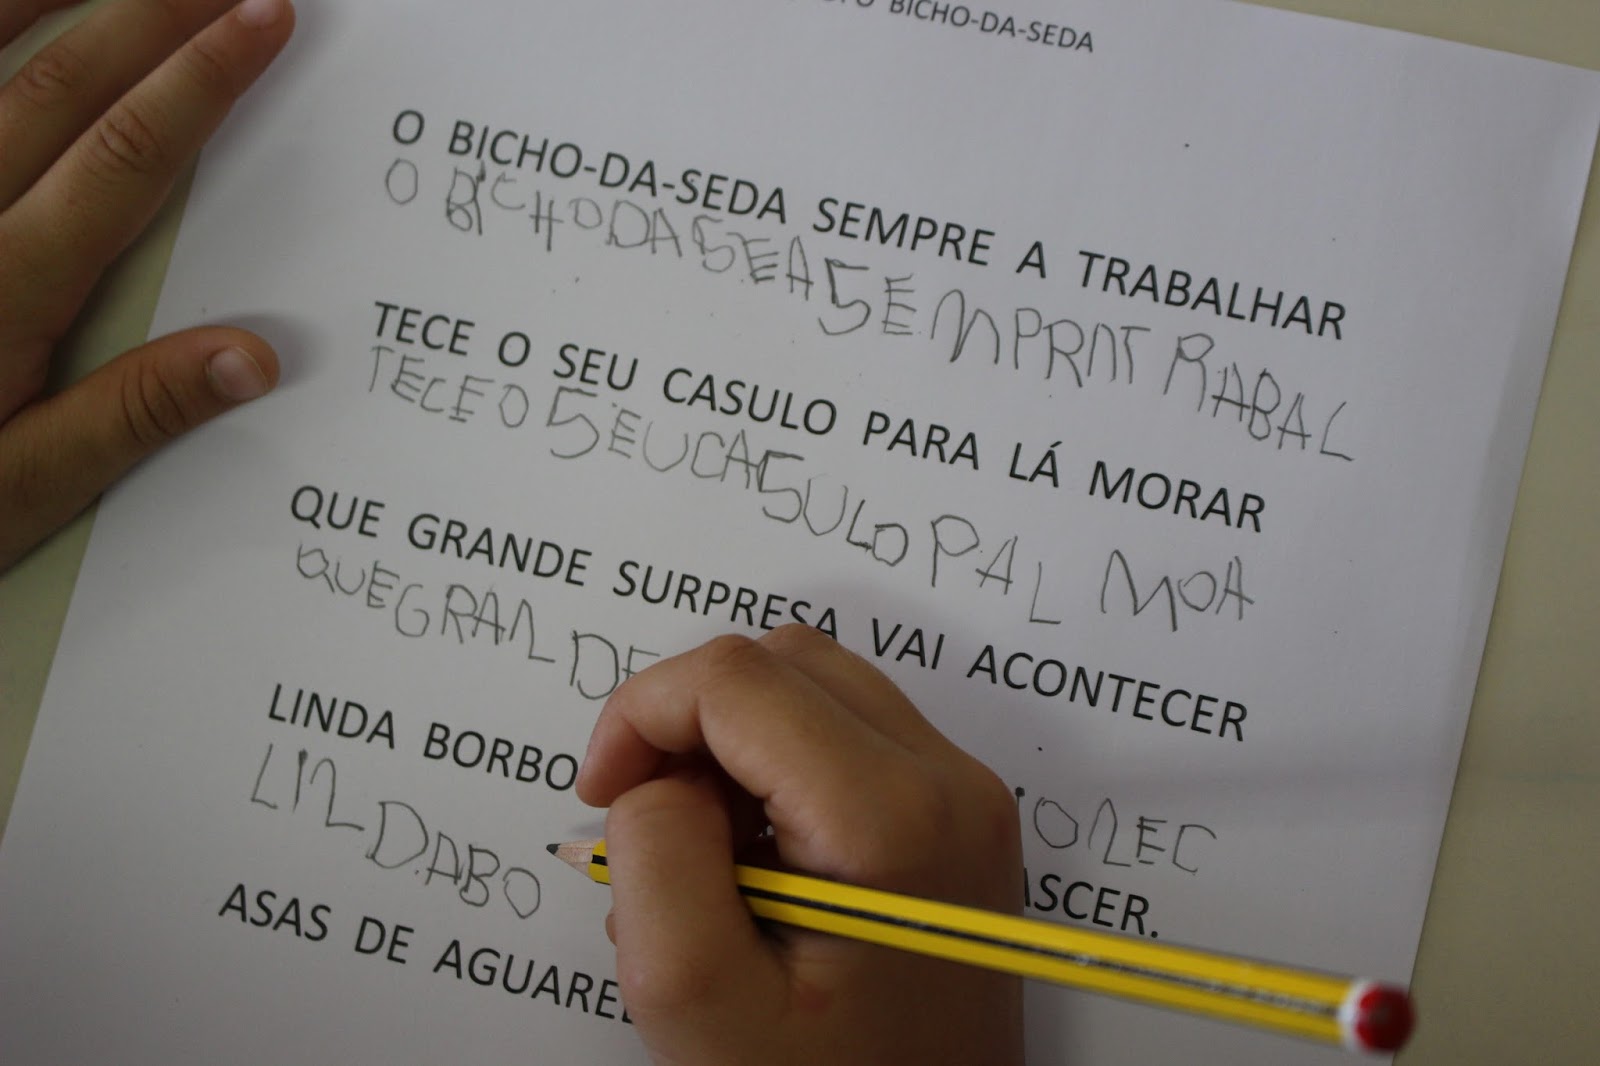 BICHO-DA-SEDA
O BICHO-DA-SEDA SEMPRE A TRABALHAR
O BICHODASEASEMPRNTRABAL
TECE O SEU CASULO PARA LÁ MORAR
TECEOSEUCASULOPALMOA
QUE GRANDE SURPRESA VAI ACONTECER
QUEGRANDE ONEC
LINDA ASCER.
LINDABO
ASAS DE